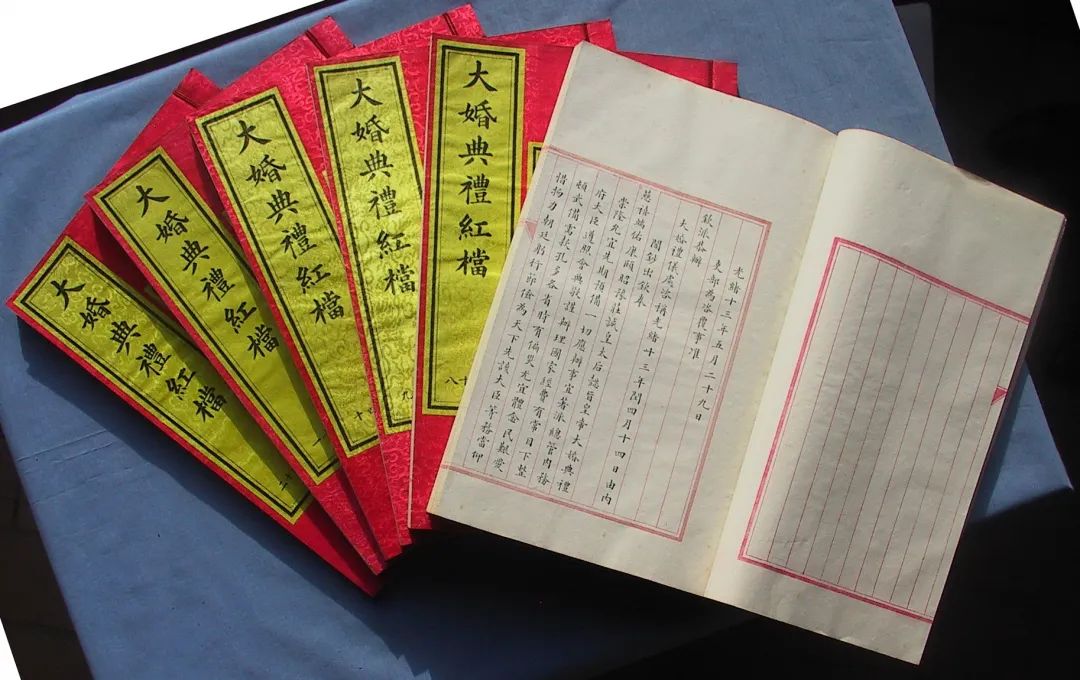 大婚典禮紅檔
大婚典禮紅檔
一
大婚典禮紅檔
大婚典禮紅檔
九
大婚典禮紅檔
光緒十三年五月二十九日
吏部為咨覆事准
欽派恭辦
大婚禮儀處咨稱光緒十三年閏四月十四日由內
閣鈔出欽奉
慈禧端佑康頤昭豫莊誠皇太后懿旨皇帝大婚典禮
崇隆允宜先期預備一切應辦事宜著派總管內務
府大臣遵照會典敬謹辦理國家經費有常目下整
頓武備需款孔多各省時有偏災尤宜體念民艱愛
惜物力朝廷躬行節儉為天下先該大臣等務當仰